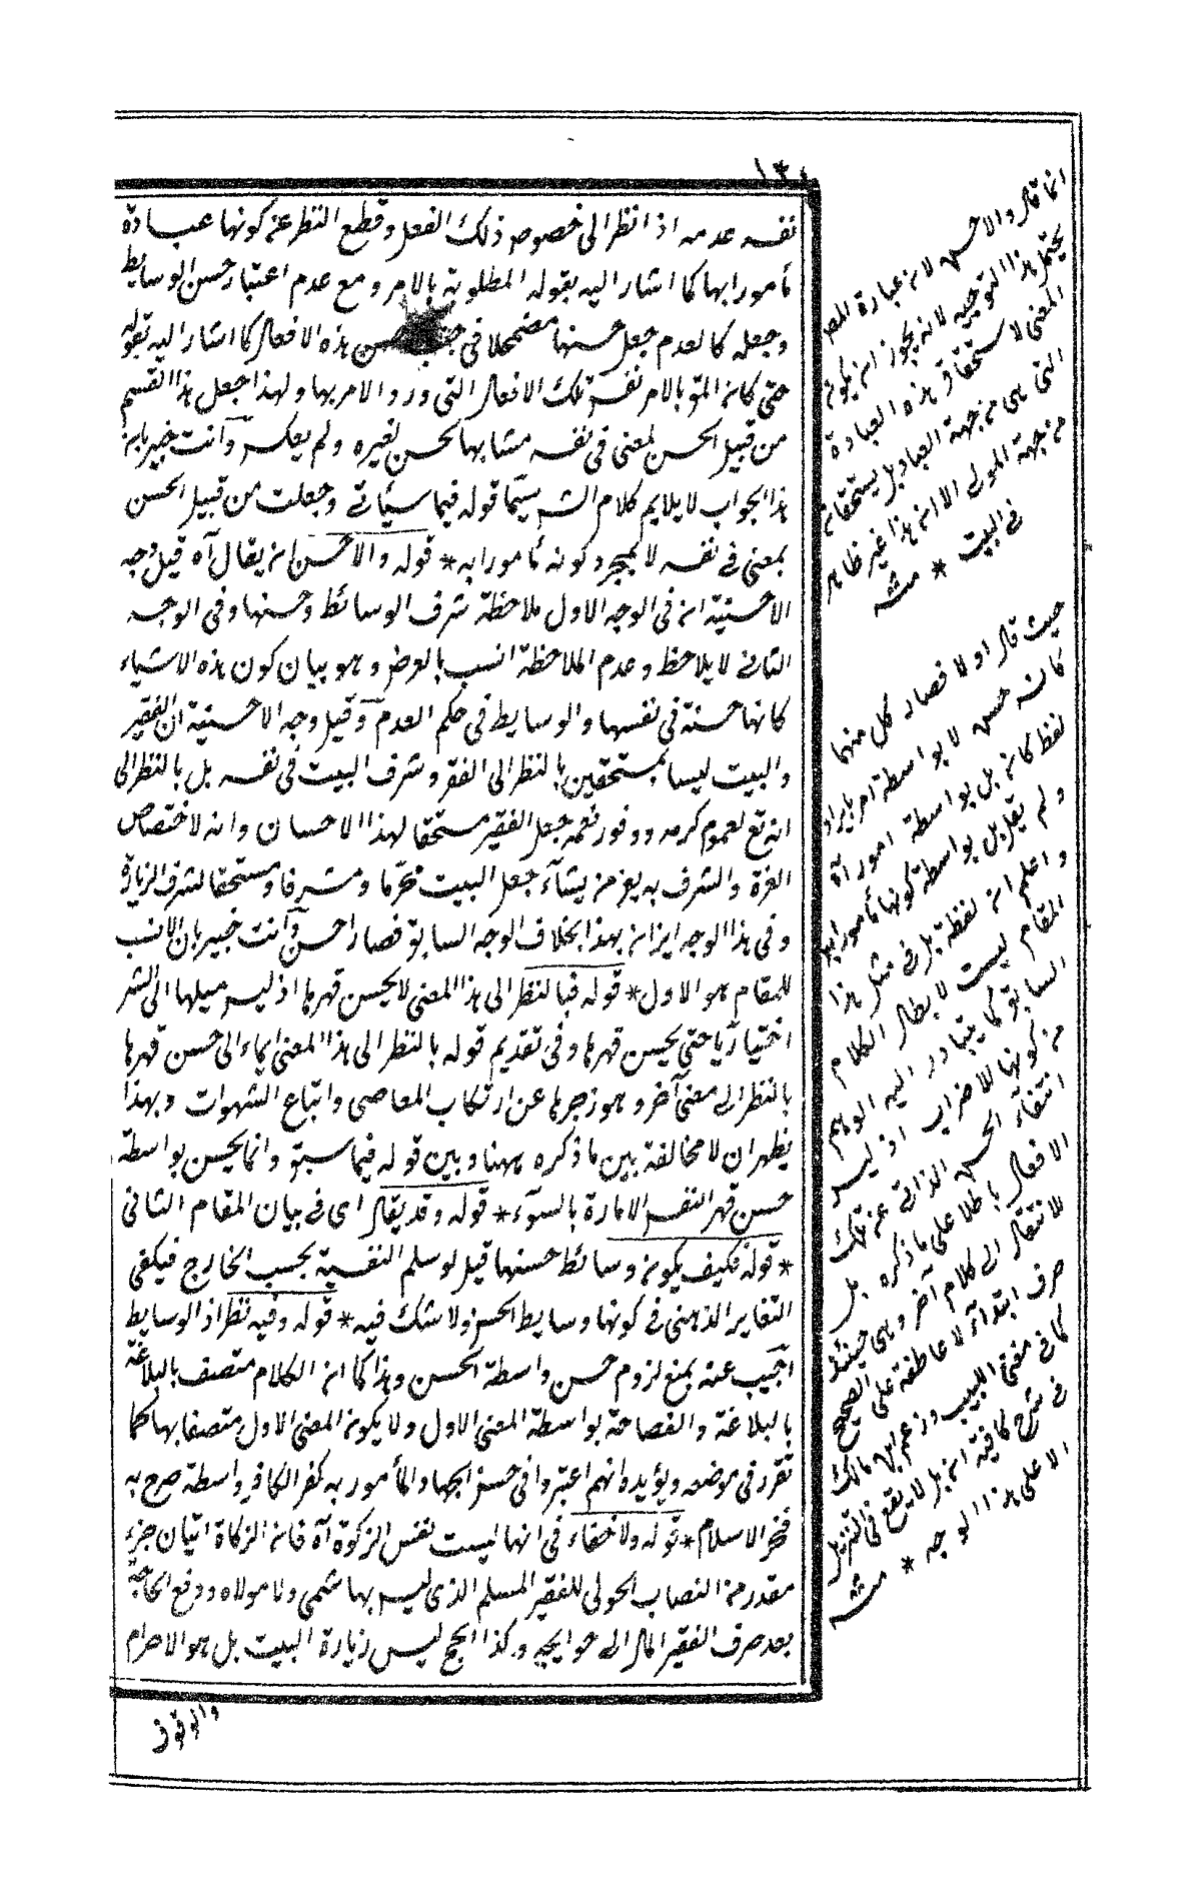 ١٣٠
نفسه عدمه اذ انظر الى خصوص ذلك الفعل وقطع النظر عن كونها عبادة
مأمورا بها كما اشار اليه بقوله المطلوبة بالامر ومع عدم اعتبار حسن الوسايط
وجعله كالعدم جعل حسنها مضمحلا فى حسن هذه الافعال كما اشار اليه بقوله
حتى كان المق بالامر نفس تلك الافعال التى ورد الامر بها ولهذا جعل هذا القسم
من قبيل الحسن لمعنى فى نفسه مشابها لحسن لغيره ولم يعكس وانت خبير بان
هذا الجواب لا يلايم كلام الشر سيما قوله فيما سيأتى وجعلت من قبيل الحسن
بمعنى فى نفسه لا لمجرد كونه مأمورا به * قوله والاحسن ان يقال آه قيل وجه
الاحسنية ان فى الوجه الاول ملاحظة شرف الوسائط وحسنها وفى الوجه
الثانى لا يلاحظ وعدم الملاحظة انسب بالغرض وهو بيان كون هذه الاشياء
كانها حسنة فى نفسها والوسايط فى حكم العدم وقيل وجه الاحسنية ان الفقير
والبيت ليسا بمستحقين بالنظر الى الفقر وشرف البيت فى نفسه بل بالنظر الى
انه تع لعموم كرمه ووفور نعمه جعل الفقير مستحقا لهذا الاحسان وانه لاختصاص
العزة والشرف به يعز من يشاء جعل البيت محرما ومشرفا ومستحقا لشرف الزيارة
وفى هذا الوجه ايذان بهذا بخلاف الوجه السابق فصار احسن وانت خبير بان الانسب
للمقام هو الاول * قوله فبالنظر الى هذا المعنى لا يحسن قهرها اذ ليس ميلها الى الشر
اختياريا حتى يحسن قهرها وفى تقديم قوله بالنظر الى هذا المعنى ايماء الى حسن قهرها
بالنظر الى معنى آخر وهو زجرها عن ارتكاب المعاصى واتباع الشهوات وبهذا
يظهر ان لا مخالفة بين ما ذكره ههنا وبين قوله فيما سبق وانما يحسن بواسطة
حسن قهر النفس الامارة بالسوء * قوله وقد يقال اى فى بيان المقام الثانى
* قوله فكيف يكون وسائط حسنها قيل لو سلم النفسية بحسب الخارج فيكفى
التغاير الذهنى فى كونها وسايط الحسن ولا شك فيه * قوله وفيه نظر اذ الوسايط
اجيب عنه بمنع لزوم حسن واسطة الحسن وهذا كما ان الكلام متصف بالبلاغة
بالبلاغة والفصاحة بواسطة المعنى الاول ولا يكون المعنى الاول متصفا بها كما
تقرر فى موضعه ويؤيده انهم اعتبروا فى حسن الجهاد المأمور به كفر الكافر واسطة صرح به
فخر الاسلام * قوله ولا خفاء فى انها ليست نفس الزكوة آه فان الزكاة ايتان جزء
مقدر من النصاب الحولى للفقير المسلم الذى ليس بهاشمى ولا مولاه ودفع الحاجة
بعد صرف الفقير المال الى حوايجه وكذا الحج ليس زيارة البيت بل هو الاحرام
والوقوف
انما قال والاحسن لان عبارة المص
يحتمل هذا التوجيه لانه يجوز ان يكون
المعنى لا يستحقاق هذه العبادة
التى هى من جهة العباد بل يستحقانه
من جهة المولى الا ان هذا غير ظاهر
فى البيت * منه
حيث قال اولا فصار كل منهما
كانه حسن لا بواسطة امر بايراد
لفظ كان بل بواسطة امور آه
ولم يقل بل بواسطة كونها مأمورا بها
واعلم ان لفظة بل فى مثل هذا
المقام ليست لابطال الكلام
السابق كما يتبادر اليه الوهم
من كونها للاضراب اذ ليس
انتفاء الحسن الذاتى عن تلك
الافعال باطلا على ما ذكره بل
للانتقال الى كلام آخر وهى حينئذ
حرف ابتداء لا عاطفة على الصحيح
كما فى مغنى اللبيب وزعم ابن مالك
فى شرح كافيته ان بل لا يقع فى التنزيل
الا على هذا الوجه * منه